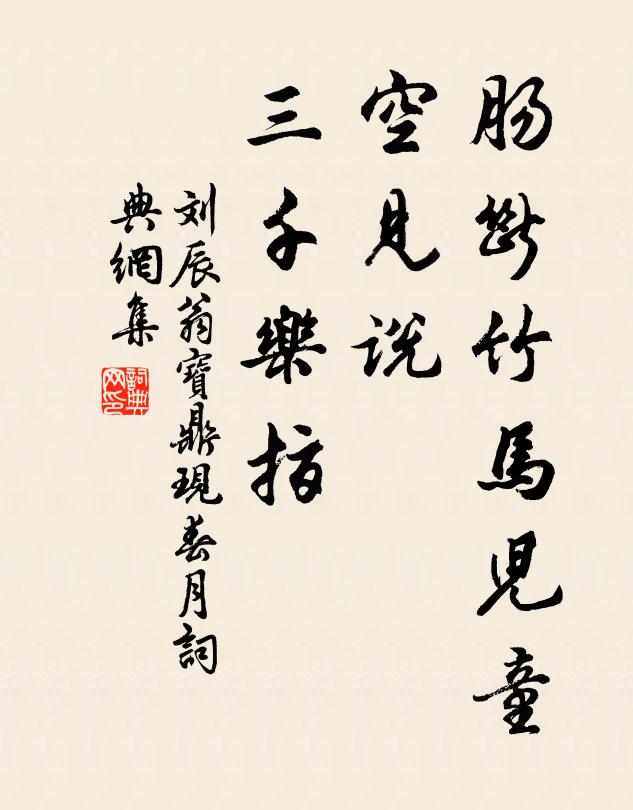 肠断竹馬兒童
空見説
三千樂指
刘辰翁寶鼎現春月詞
典網集
詞典
网印